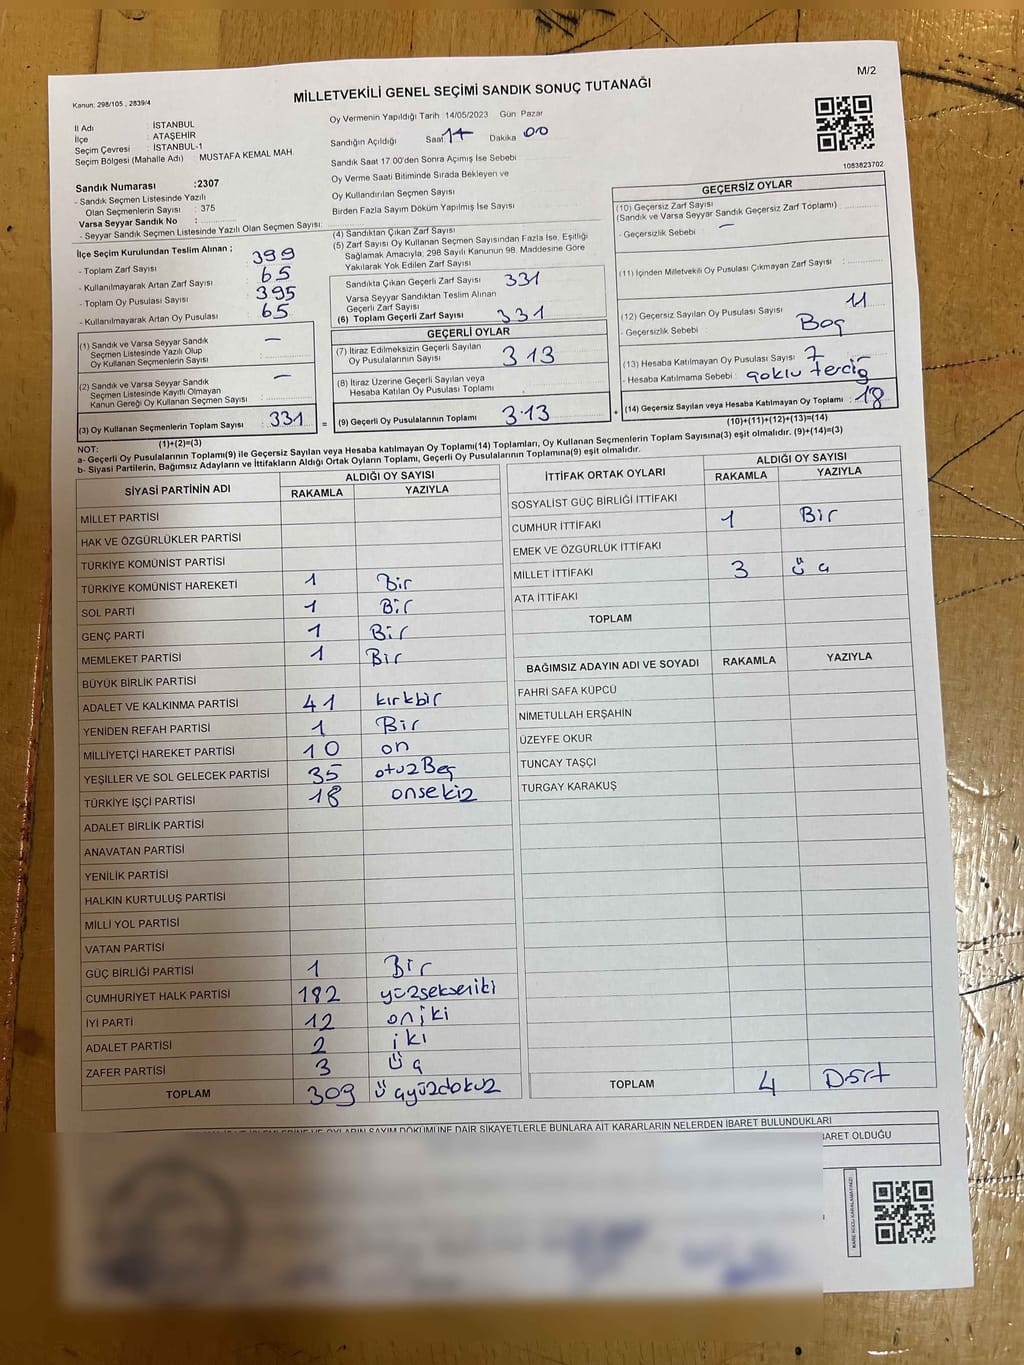 M/2
Kanun; 298/105 , 2839/4
MİLLETVEKİLİ GENEL SEÇİMİ SANDIK SONUÇ TUTANAĞI
İl Adı : İSTANBUL
İlçe : ATAŞEHİR
Seçim Çevresi : İSTANBUL-1
Seçim Bölgesi (Mahalle Adı) MUSTAFA KEMAL MAH.
Sandık Numarası :2307
- Sandık Seçmen Listesinde Yazılı
Olan Seçmenlerin Sayısı : 375
Varsa Seyyar Sandık No :
- Seyyar Sandık Seçmen Listesinde Yazılı Olan Seçmen Sayısı:
Oy Vermenin Yapıldığı Tarih 14/05/2023 Gün Pazar
Sandığın Açıldığı Saat 17 Dakika 00
Sandık Saat 17.00'den Sonra Açımış İse Sebebi
Oy Verme Saati Bitiminde Sırada Bekleyen ve
Oy Kullandırılan Seçmen Sayısı
Birden Fazla Sayım Döküm Yapılmış İse Sayısı
1083823702
İlçe Seçim Kurulundan Teslim Alınan ;
- Toplam Zarf Sayısı 399
- Kullanılmayarak Artan Zarf Sayısı 65
- Toplam Oy Pusulası Sayısı 395
- Kullanılmayarak Artan Oy Pusulası 65
(1) Sandık ve Varsa Seyyar Sandık
Seçmen Listesinde Yazılı Olup
Oy Kullanan Seçmenlerin Sayısı : —
(2) Sandık ve Varsa Seyyar Sandık
Seçmen Listesinde Kayıtlı Olmayan
Kanun Gereği Oy Kullanan Seçmen Sayısı : —
(3) Oy Kullanan Seçmenlerin Toplam Sayısı : 331
(1)+(2)=(3)
(4) Sandıktan Çıkan Zarf Sayısı
(5) Zarf Sayısı Oy Kullanan Seçmen Sayısından Fazla İse, Eşitliği
Sağlamak Amacıyla, 298 Sayılı Kanunun 98. Maddesine Göre
Yakılarak Yok Edilen Zarf Sayısı
Sandıkta Çıkan Geçerli Zarf Sayısı 331
Varsa Seyyar Sandıktan Teslim Alınan
Geçerli Zarf Sayısı
(6) Toplam Geçerli Zarf Sayısı 331
GEÇERLİ OYLAR
(7) İtiraz Edilmeksizin Geçerli Sayılan
Oy Pusulalarının Sayısı 313
(8) İtiraz Üzerine Geçerli Sayılan veya
Hesaba Katılan Oy Pusulası Toplamı
= (9) Geçerli Oy Pusulalarının Toplamı 313
GEÇERSİZ OYLAR
(10) Geçersiz Zarf Sayısı
(Sandık ve Varsa Seyyar Sandık Geçersiz Zarf Toplamı)
- Geçersizlik Sebebi : —
(11) İçinden Milletvekili Oy Pusulası Çıkmayan Zarf Sayısı
(12) Geçersiz Sayılan Oy Pusulası Sayısı : 11
- Geçersizlik Sebebi : Boş
(13) Hesaba Katılmayan Oy Pusulası Sayısı : 7
- Hesaba Katılmama Sebebi : çoklu tercih
+ (14) Geçersiz Sayılan veya Hesaba Katılmayan Oy Toplamı : 18
(10)+(11)+(12)+(13)=(14)
NOT:
a- Geçerli Oy Pusulalarının Toplamı(9) ile Geçersiz Sayılan veya Hesaba katılmayan Oy Toplamı(14) Toplamları, Oy Kullanan Seçmenlerin Toplam Sayısına(3) eşit olmalıdır. (9)+(14)=(3)
b- Siyasi Partilerin, Bağımsız Adayların ve İttifakların Aldığı Ortak Oyların Toplamı, Geçerli Oy Pusulalarının Toplamına(9) eşit olmalıdır.
SİYASİ PARTİNİN ADI ALDIĞI OY SAYISI
RAKAMLA YAZIYLA
MİLLET PARTİSİ
HAK VE ÖZGÜRLÜKLER PARTİSİ
TÜRKİYE KOMÜNİST PARTİSİ
TÜRKİYE KOMÜNİST HAREKETİ 1 Bir
SOL PARTİ 1 Bir
GENÇ PARTİ 1 Bir
MEMLEKET PARTİSİ 1 Bir
BÜYÜK BİRLİK PARTİSİ
ADALET VE KALKINMA PARTİSİ 41 kırkbir
YENİDEN REFAH PARTİSİ 1 Bir
MİLLİYETÇİ HAREKET PARTİSİ 10 on
YEŞİLLER VE SOL GELECEK PARTİSİ 35 otuzBeş
TÜRKİYE İŞÇİ PARTİSİ 18 onsekiz
ADALET BİRLİK PARTİSİ
ANAVATAN PARTİSİ
YENİLİK PARTİSİ
HALKIN KURTULUŞ PARTİSİ
MİLLİ YOL PARTİSİ
VATAN PARTİSİ
GÜÇ BİRLİĞİ PARTİSİ 1 Bir
CUMHURİYET HALK PARTİSİ 182 yüzsekseniki
İYİ PARTİ 12 oniki
ADALET PARTİSİ 2 iki
ZAFER PARTİSİ 3 üç
TOPLAM 309 üçyüzdokuz
İTTİFAK ORTAK OYLARI ALDIĞI OY SAYISI
RAKAMLA YAZIYLA
SOSYALİST GÜÇ BİRLİĞİ İTTİFAKI
CUMHUR İTTİFAKI 1 Bir
EMEK VE ÖZGÜRLÜK İTTİFAKI
MİLLET İTTİFAKI 3 üç
ATA İTTİFAKI
TOPLAM
BAĞIMSIZ ADAYIN ADI VE SOYADI RAKAMLA YAZIYLA
FAHRİ SAFA KÜPCÜ
NİMETULLAH ERŞAHİN
ÜZEYFE OKUR
TUNCAY TAŞÇI
TURGAY KARAKUŞ
TOPLAM 4 Dört
OYLARIN SAYIM DÖKÜMÜNE DAİR ŞİKAYETLERLE BUNLARA AİT KARARLARIN NELERDEN İBARET BULUNDUKLARI
OLDUĞU